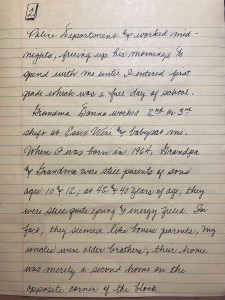 2
Police Department & worked mid-
nights, freeing up his mornings to
spend with me until I entered first
grade which was a full day of school.
Grandma Donna worked 2nd or 3rd
shift at Essex Wire & babysat me.
When I was born in 1964, Grandpa
& Grandma were still parents of sons
aged 10 & 12; at 45 & 40 years of age, they
were still quite young & energy filled. In
fact, they seemed like bonus parents, my
uncles were older brothers, their home
was merely a second home on the
opposite corner of the block.